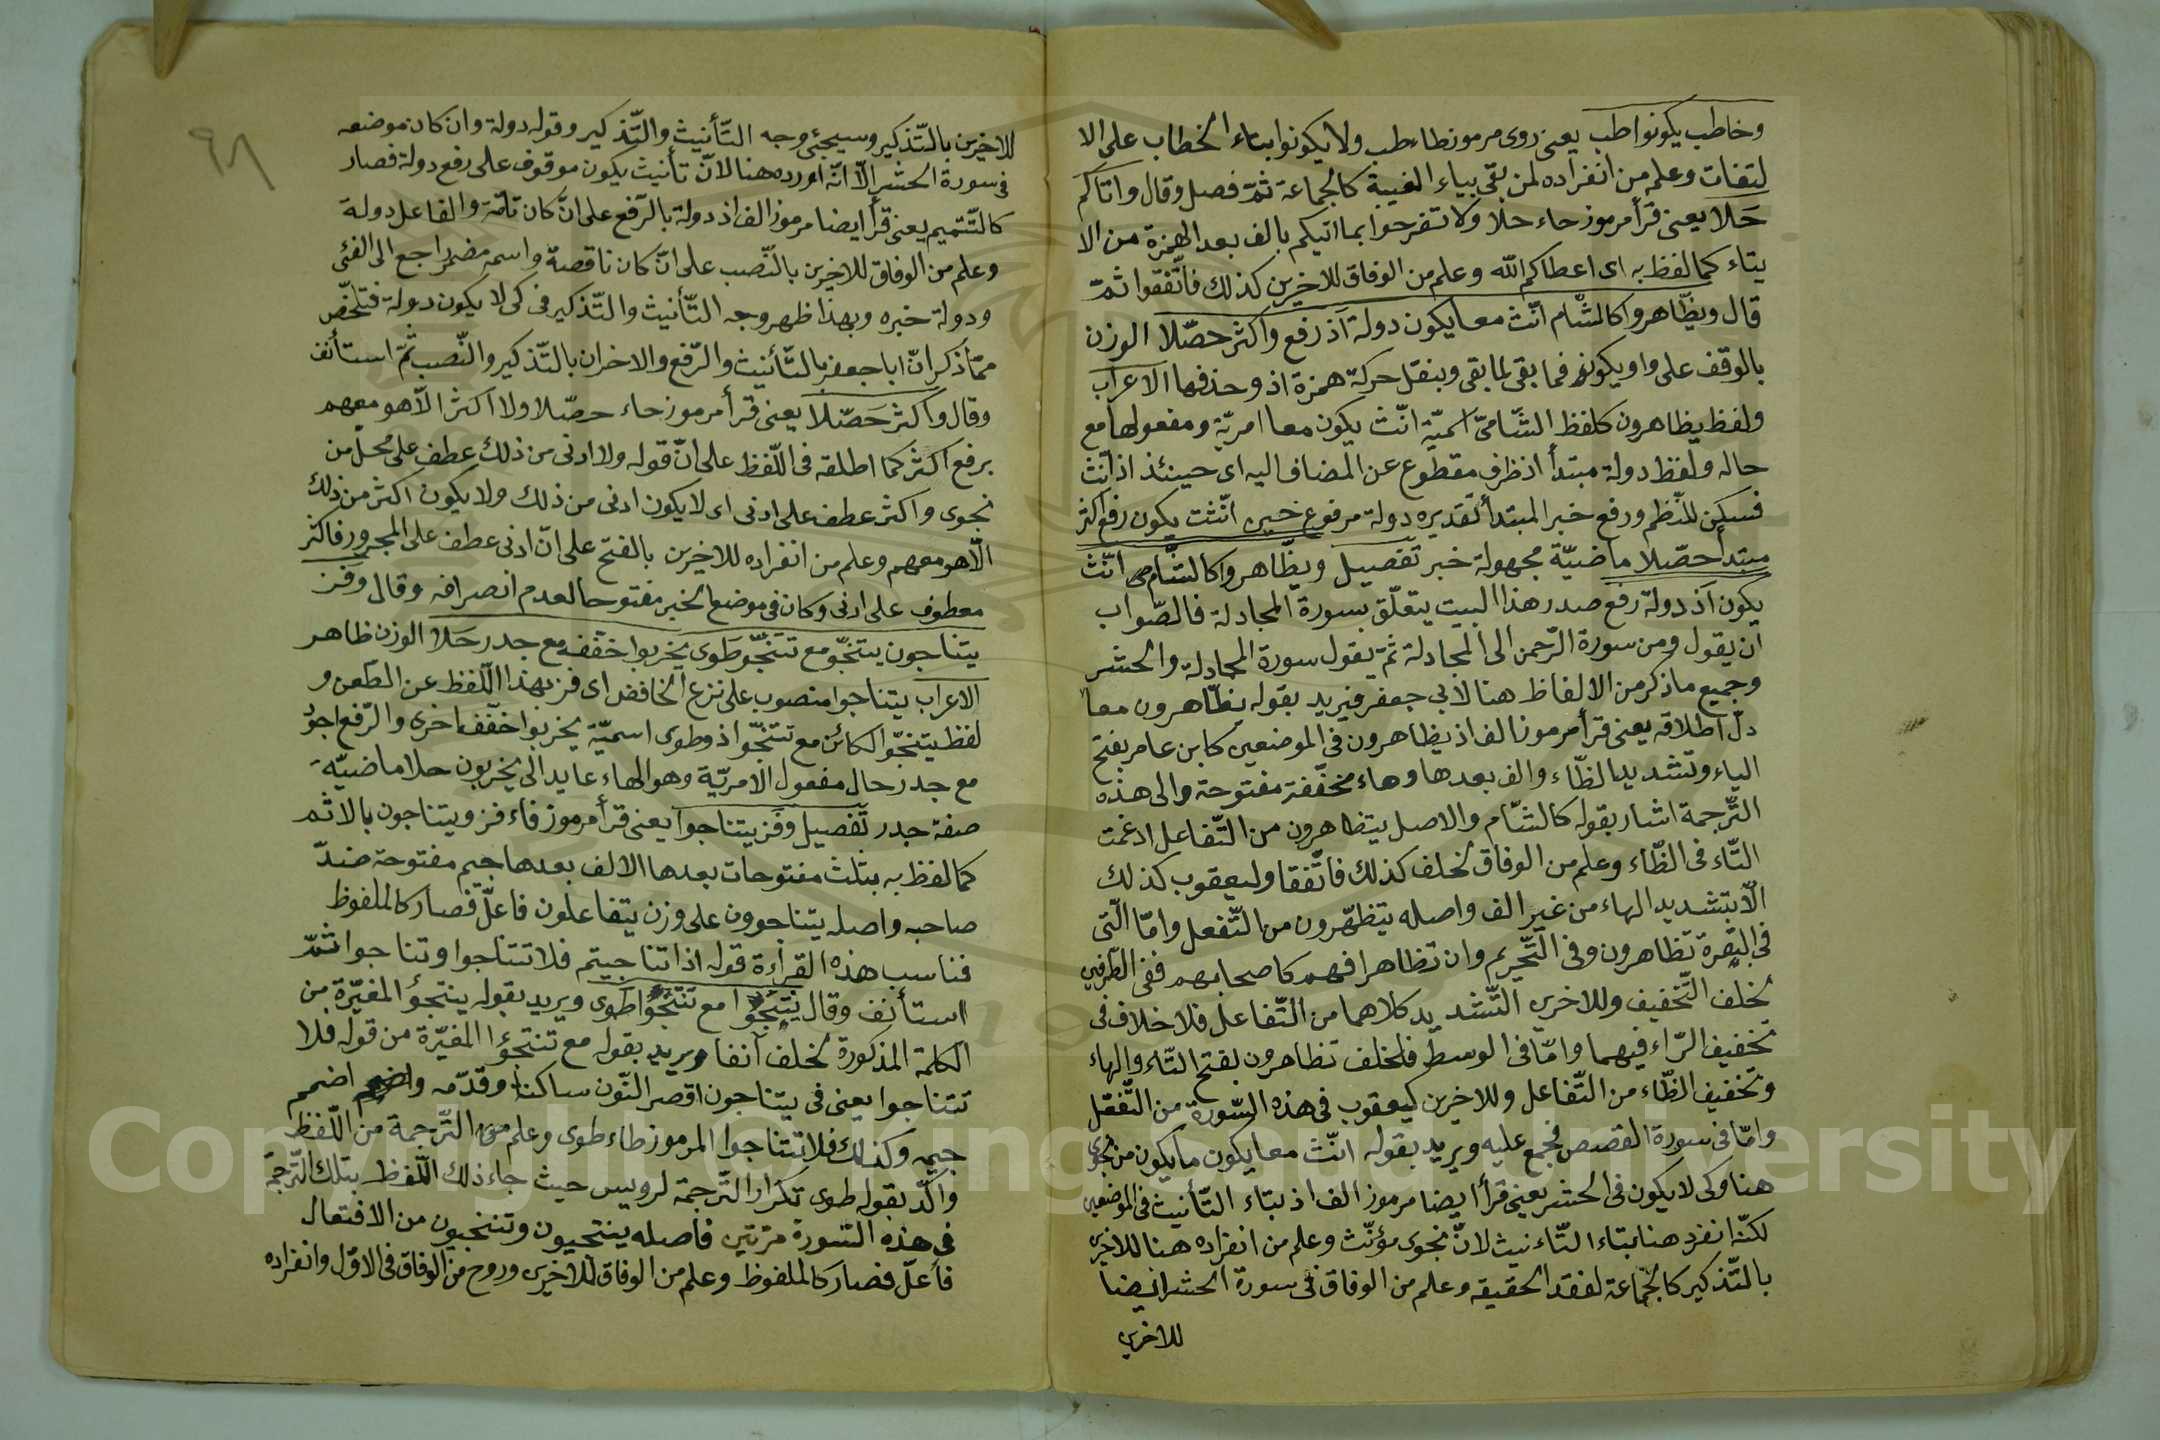 وخاطب يكونوا طب يعنى روى مرموز طاء طب ولا يكونوا بتاء الخطاب على الا
لتفات وعلم من انفراده لمن بقى بياء الغيبة كالجماعة ثمّ فصل وقال واتاكم
حَلا يعنى قرأ مرموز حاء حلا ولا تفرحوا بما اتيكم بالف بعد الهمزة من الا
يتاء كما لفظ به اى اعطاكم الله وعلم من الوفاق للاخرين كذلك فاتّفقوا ثمّ
قال ويظّاهروا كالشّام انّث معا يكون دولة اذ رفع واكثر حصّلا الوزن
بالوقف على واو يكونو فما بقى لما بقى وبنقل حركة همزة اذ وحذفها الاعراب
ولفظ يظاهرون كلفظ الشّامىّ اسميّة انّث يكون معا امريّة ومفعولها مع
حاله ولفظ دولة مبتدأ اذ ظرف مقطوع عن المضاف اليه اى حينئذ اذ انّث
فسكن للنّظم ورفع خبر المبتدأ تقديره دولة مرفوع حين انّثت يكون رفع اكثر
مبتدأ حصّلا ماضيّة مجهولة خبر تفصيل ويظّاهروا كالشّامى انّث
يكون اذ دولة رفع صدر هذا البيت يتعلّق بسورة المجادلة فالصّواب
ان يقول ومن سورة الرّحمن الى المجادلة ثمّ يقول سورة المجادلة والحشر
وجميع ما ذكر من الالفاظ هنا لابى جعفر فيريد بقوله يظّاهرون معا
دلّ اطلاقه يعنى قرأ مرموز الف اذ يظاهرون فى الموضعين كابن عامر بفتح
الياء وتشديد الظّاء والف بعدها وهاء مخفّفة مفتوحة والى هذه
التّرجمة اشار بقوله كالشّام والاصل يتظاهرون من التّفاعل ادغمت
التّاء فى الظّاء وعلم من الوفاق لخلف كذلك فاتّفقا وليعقوب كذلك
الّا بتشديد الهاء من غير الف واصله يتظهّرون من التّفعل وامّا الّتى
فى البقرة تظاهرون وفى التّحريم وان تظاهرا فهم كاصحابهم ففى الطّرفين
لخلف التّخفيف وللاخرين التّشديد كلاهما من التّفاعل فلا خلاف فى
تخفيف الرّاء فيهما وامّا فى الوسط فلخلف تظاهرون بفتح التّاء والهاء
وتخفيف الظّاء من التّفاعل وللاخرين كيعقوب فى هذه السّورة من التّفعّل
وامّا فى سورة القصص فمجمع عليه ويريد بقوله انّث معا يكون ما يكون من نجوى
هنا وكى لا يكون فى الحشر يعنى قرأ ايضا مرموز الف اذ بتاء التّأنيث فى الموضعين
لكنّه انفرد هنا بتاء التّاءنيث لانّ نجوى مؤنّث وعلم من انفراده هنا للاخرين
بالتّذكير كالجماعة لفقد الحقيقه وعلم من الوفاق فى سورة الحشر ايضا
للاخرين
٩٨
للاخرين بالتّذكير وسيجئ وجه التّأنيث والتّذكير وقوله دولة وان كان موضعه
فى سورة الحشر الّا انّه اورده هنا لانّ تأنيث يكون موقوف على رفع دولة فصار
كالتّتميم يعنى قرأ ايضا مرموز الف اذ دولة بالرّفع على انّ كان تامّة والفاعل دولة
وعلم من الوفاق للاخرين بالنّصب على انّ كان ناقصة واسمه مضمر راجع الى الفئى
ودولة خبره وبهذا ظهر وجه التّأنيث والتّذكير فى كى لا يكون دولة فتلخّص
ممّا ذكر انّ ابا جعفر بالتّأنيث والرّفع والاخران بالتّذكير والنّصب ثمّ استأنف
وقال واكثر حَصّلا يعنى قرأ مرموز حاء حصّلا ولا اكثر الّا هو معهم
برفع اكثر كما اطلقه فى اللّفظ على انّ قوله ولا ادنى من ذلك عطف على محلّ من
نجوى واكثر عطف على ادنى اى لا يكون ادنى من ذلك ولا يكون اكثر من ذلك
الّا هو معهم وعلم من انفراده للاخرين بالفتح على انّ ادنى عطف على المجرور فاكثر
معطوف على ادنى وكان فى موضع الخبر مفتوحا لعدم انصرافه وقال وفز
يتناجون ينتجو مع تنتجو طَوى يخربوا خفّفه مع جدر حَلا الوزن ظاهر
الاعراب يتناجوا منصوب على نزع الخافض اى فز بهذا اللّفظ عن الطّعن و
لفظ ينتجّوا الكائن مع تنتجّوا ذو طوى اسميّة يخربوا خفّفه اخرى والرّفع اجود
مع جدر حال مفعول الامريّة وهو الهاء عايد الى يخربون حلا ماضيّة
صفة جدر تفصيل وفز يتناجوا يعنى قرأ مرموز فاء فز ويتناجون بالاثم
كما لفظ به بثلث مفتوحات بعدها الالف بعدها جيم مفتوحة ضدّ
صاحبه واصله يتناجوون على وزن يتفاعلون فاعلّ فصار كالملفوظ
فناسب هذه القراءة قوله اذا تناجيتم فلا تتناجوا وتناجوا ثمّ
استأنف وقال ينتجوا مع تنتجوا طوى ويريد بقوله ينتجوا المغيّرة من
الكلمة المذكورة لخلف آنفا ويريد بقوله مع تنتجوا المغيّرة من قوله فلا
تتناجوا يعنى فى يتناجون اقصر النّون ساكنا وقدّمه واضمم
جيمه وكذلك فلا تتناجوا المرموز طاء طوى وعلم هذه التّرجمة من اللّفظ
واكّد بقوله طوى تكرار التّرجمة لرويس حيث جاء ذلك اللّفظ بتلك التّرجمة
فى هذه السّورة مرّتين فاصله ينتجيون وتنتجيون من الافتعال
فاعلّ فصار كالملفوظ وعلم من الوفاق للاخرين وروح من الوفاق فى الاوّل وانفراده
Copyright © King Saud University